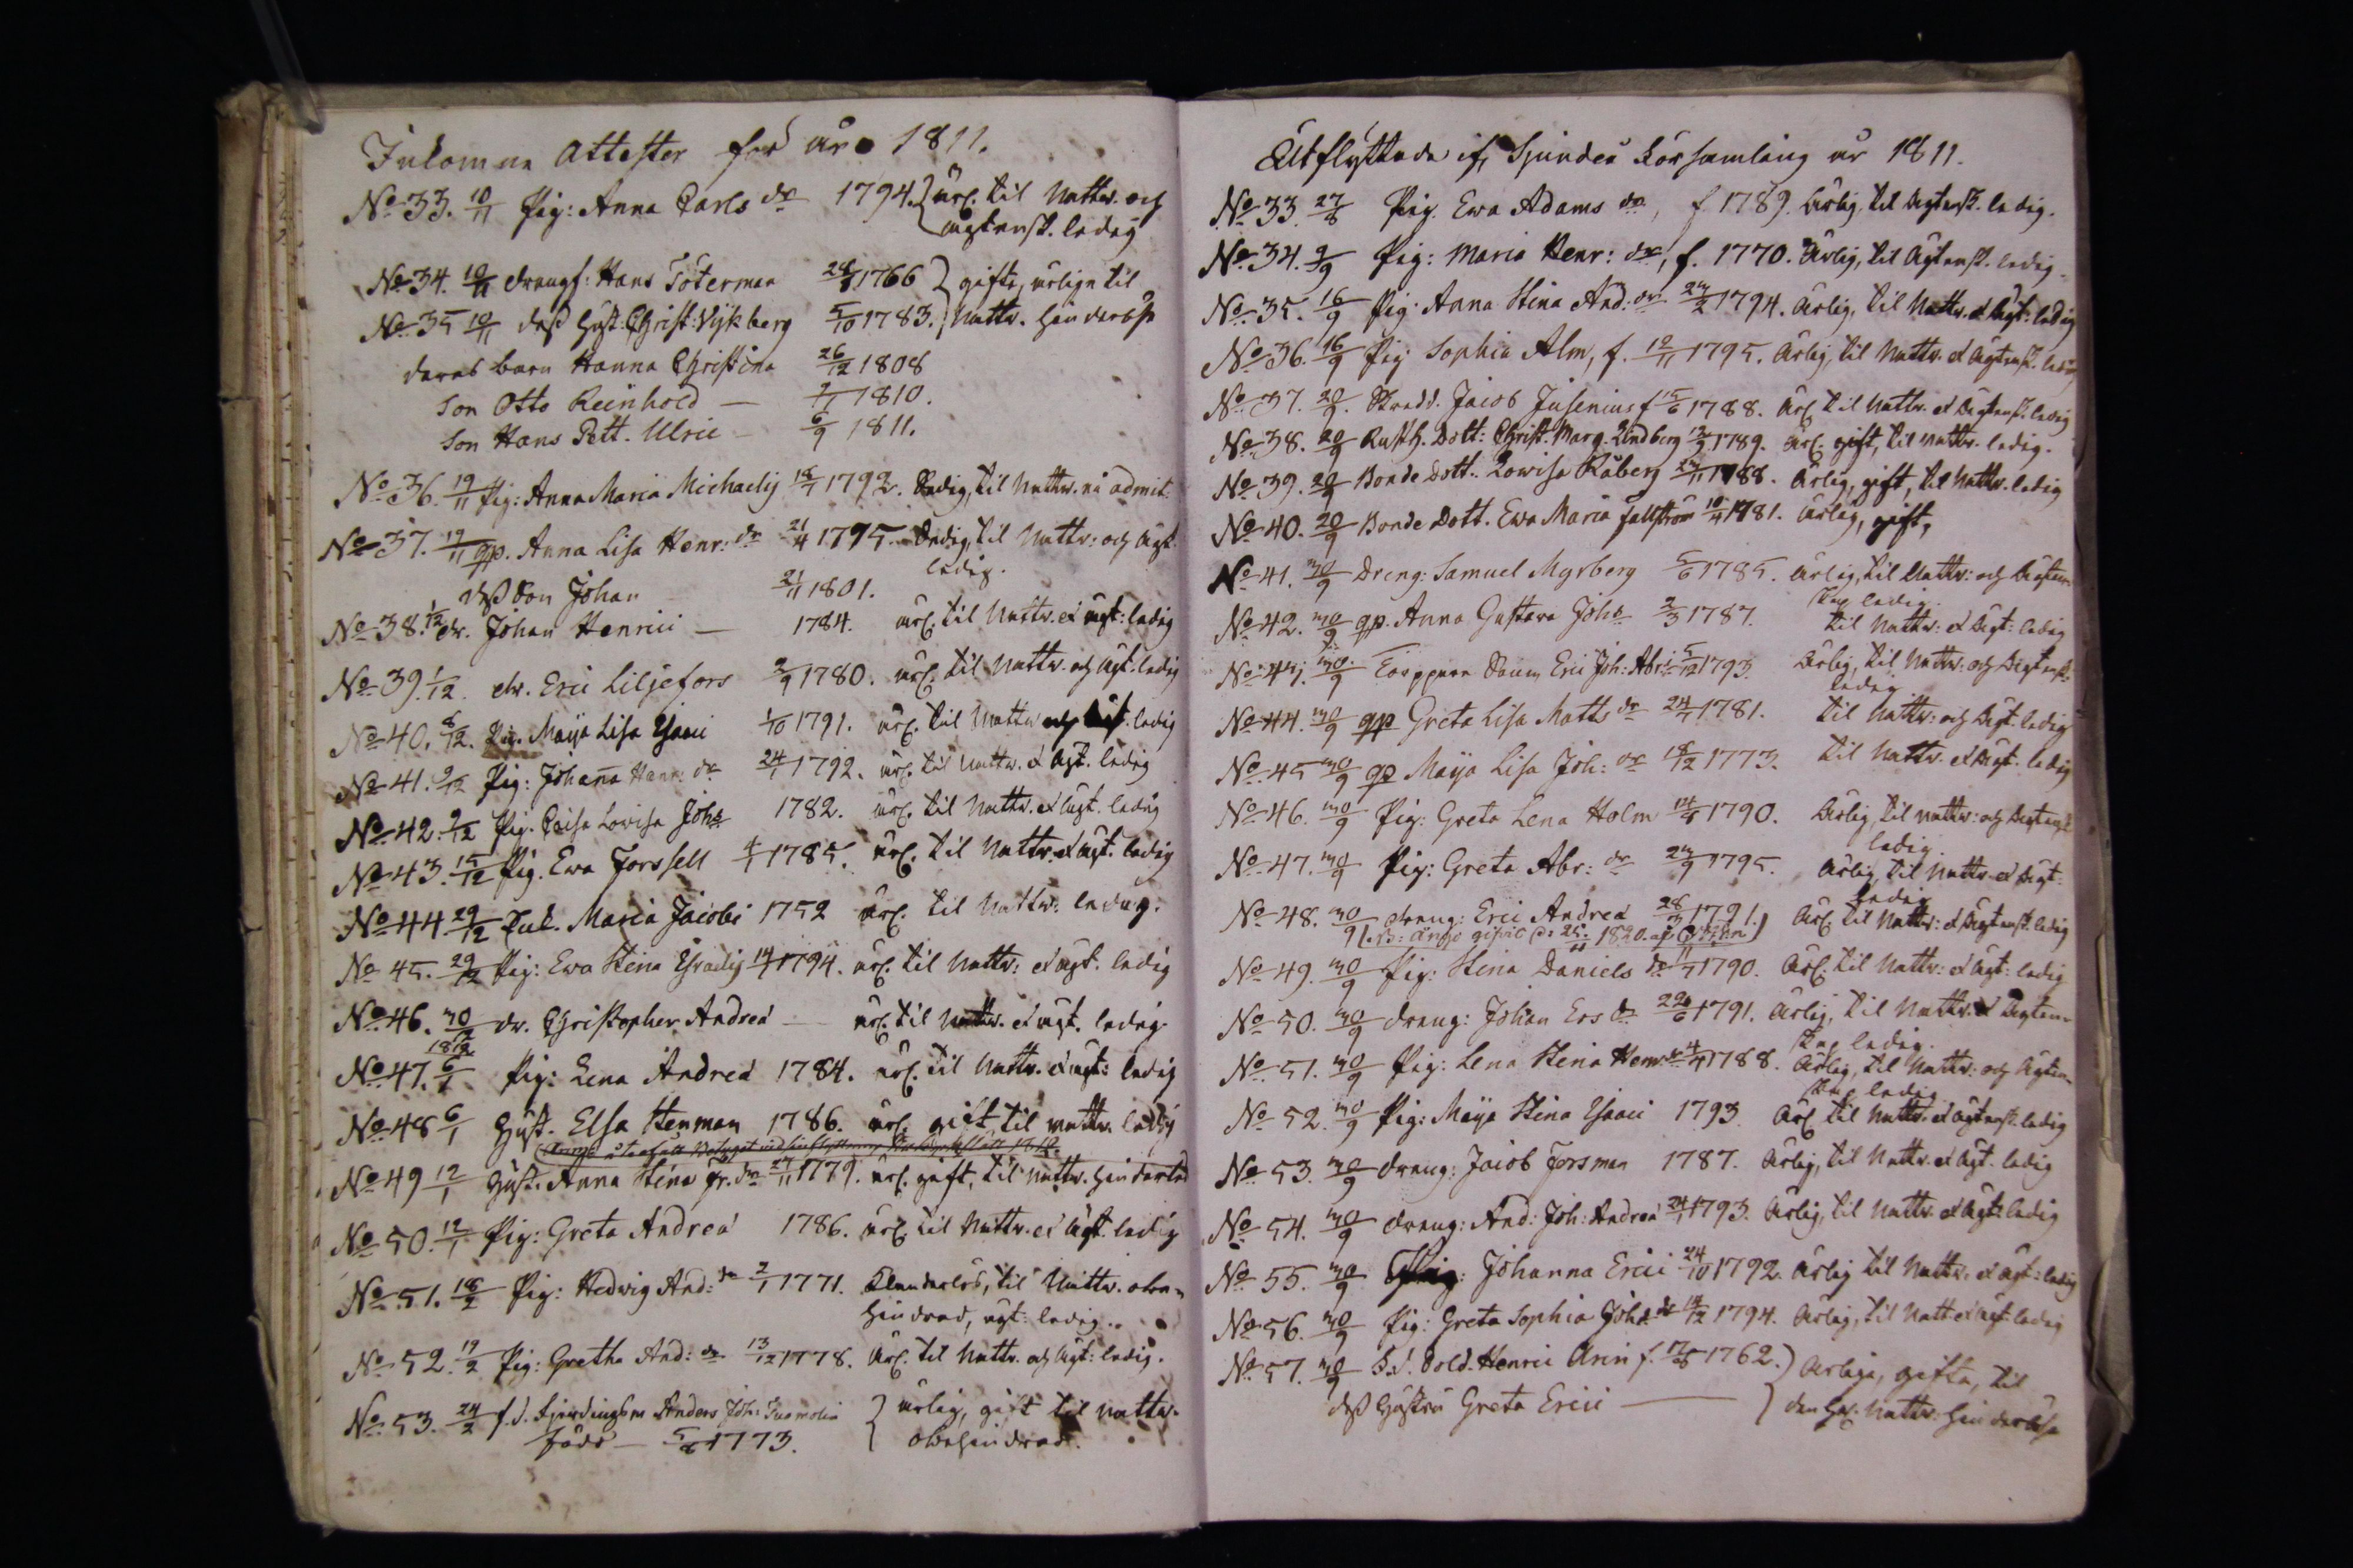 Inkomne Attester för år 1811.
No 33. 10/11 Pig: Anna Carls dr 1794. ärl. til Nattv. och
ägtensk. ledig
No 34. 10/11 drengf: Hans Töterman 28/8 1766 gifte, ärlige til
No 35 10/11 dess Hust: Christ: Vijkberg 5/10 1783. Nattv. hinderlöse
deras barn Hanna Christina 26/12 1808
Son Otto Reinhold — 1810.
Son Hans Pett. Ulric — 6/9 1811.
No 36. 19/11 Pig: Anna Maria Michaelis 18/1 1792. Ledig, til Nattv. ei admit.
No 37. 19/11 qp. Anna Lisa Henr: dr 21/4 1795. Ledig, til Nattv: och ägt.
ledig.
dess Son Johan 21/11 1801.
No 38. 1/12 dr. Johan Henrici — 1784. ärl. til Nattv. et ägt: ledig
No 39. 1/12. dr. Eric Liljefors 2/9 1780. ärl. til Nattv. och ägt. ledig
No 40. 8/12. Pig. Maija Lisa Isaaci 1/10 1791. ärl. til Nattv. och ägt. ledig
No 41. 9/12 Pig: Johanna Henr: dr 24/1 1792. ärl. til Nattv. et ägt. ledig
No 42. 9/12 Pig. Caisa Lovisa Johs 1782. ärl. til Nattv. et ägt. ledig
No 43. 15/12 Pig. Ewa Forssell 4/1 1785. ärl. til Nattv. et ägt. ledig
No 44. 29/12 Enk. Maria Jacobi 1752 ärl. til Nattv: ledig.
No 45. 29/12 Pig: Ewa Stina Israelis 14/1 1794. ärl. til Nattv: et ägt. ledig
No 46. 30/12 dr. Christopher Andreæ — ärl. til Nattv. et ägt. ledig.
1812
No 47. 6/1 Pig: Lena Andreæ 1784. ärl. til Nattv. et ägt: ledig
No 48 6/1 Hust. Elsa Stenman 1786. ärl. gift, til nattv. ledig
No 49 12/1 Hust. Anna Stina Gr. dr 27/11 1779. ärl. gift, til nattv. hinderlös
No 50. 12/1 Pig: Greta Andreæ 1786. ärl. til Nattv. et ägt. ledig
No 51. 18/2 Pig: Hedvig And: dr 2/1 1771. Klanderlös, til Nattv. obe-
hindrad, ägt: ledig.
No 52. 19/2 Pig: Gretha And: dr 13/12 1778. ärl. til Nattv. och ägt: ledig.
No 53. 24/2 f.d. Fjerdingsm Anders Joh: ärlig, gift til nattv.
född — 5/8 1773. obehindrad.
Utflyttade if. Sjundeå Församling år 1811.
No 33. 27/8 Pig. Ewa Adams dr, f 1789. Ärlig, til Ägtensk. ledig.
No 34. 2/9 Pig: Maria Henr: dr, f. 1770. Ärlig, til Ägtensk. ledig.
No 35. 16/9 Pig: Anna Stina And: dr 23/2 1794. Ärlig, til Nattv. et Ägt: ledig
No 36. 16/9 Pig: Sophia Alm, f. 12/11 1795. Ärlig, til Nattv. et Ägtensk. ledig
No 37. 20/9. Skredd. Jacob Jusenius f 15/6 1788. Ärl. til Nattv. et Ägtensk. ledig
No 38. 20/9 Rusth. Dott: Christ. Marg. Lindberg 12/9 1789. ärl. gift, til nattv. ledig.
No 39. 20/9 Bonde Dott. Lowisa Råberg 1788. Ärlig, gift, til Nattv. ledig
No 40. 20/9 Bonde Dott. Ewa Maria Fallström 10/4 1781. Ärlig, gift,
No 41. 30/9 Dreng: Samuel Myrberg 5/6 1785. Ärlig, til Nattv: och Ägten-
skap ledig.
No 42. 30/9 qp. Anna Gustava Johs 2/3 1787. til Nattv: et Ägt: ledig
No 43. 30/9 Torppare Sonen Eric Joh: Abr: 5/12 1793. Ärlig, til Nattv: och Ägtensk:
ledig
No 44. 30/9 qp Greta Lisa Matts dr 24/1 1781. til Nattv: och Ägt: ledig
No 45 30/9 qp Maija Lisa Joh: dr 18/12 1773. til Nattv. et Ägt. ledig
No 46. 30/9 Pig: Greta Lena Holm 14/8 1790. Ärlig, til nattv: och Ägtensk
ledig.
No 47. 30/9 Pig: Greta Abr: dr 23/9 1795. Ärlig, til Nattv. et Ägt.
ledig
No 48. 30/9 dreng: Eric Andreæ 28/3 1791. Ärl. til Nattv: et Ägtensk. ledig
No 49. 30/9 Pig: Stina Daniels dr 11/7 1790. Ärl. til Nattv: et Ägt: ledig
No 50. 30/9 dreng: Johan Ers dr 22/6 1791. Ärlig, til Nattv. et Ägten-
skap ledig.
No 51. 30/9 Pig: Lena Stina Henr: dr 4/4 1788. Ärlig, til Nattv: och Ägten-
skap ledig.
No 52. 30/9 Pig: Maija Stina Isaaci 1793 Ärl. til Nattv. et ägtensk. ledig
No 53. 30/9 dreng: Jacob Forsman 1787. Ärlig, til Nattv. et Ägt. ledig
No 54. 30/9 dreng: And: Joh: Andreæ 24/1 1793. Ärlig, til Nattv. et Ägt: ledig
No 55. 30/9 Pig: Johanna Erici 24/10 1792. Ärlig til Nattv. et ägt: ledig
No 56. 30/9 Pig: Greta Sophia Johs dr 14/12 1794. Ärlig, til Natt et ägt: ledig
No 57. 30/9 f.d. Sold. Henric Arin f. 17/8 1762. Ärlige, gifta, til
dess Hustru Greta Erici — den H. nattv: hinderlöse